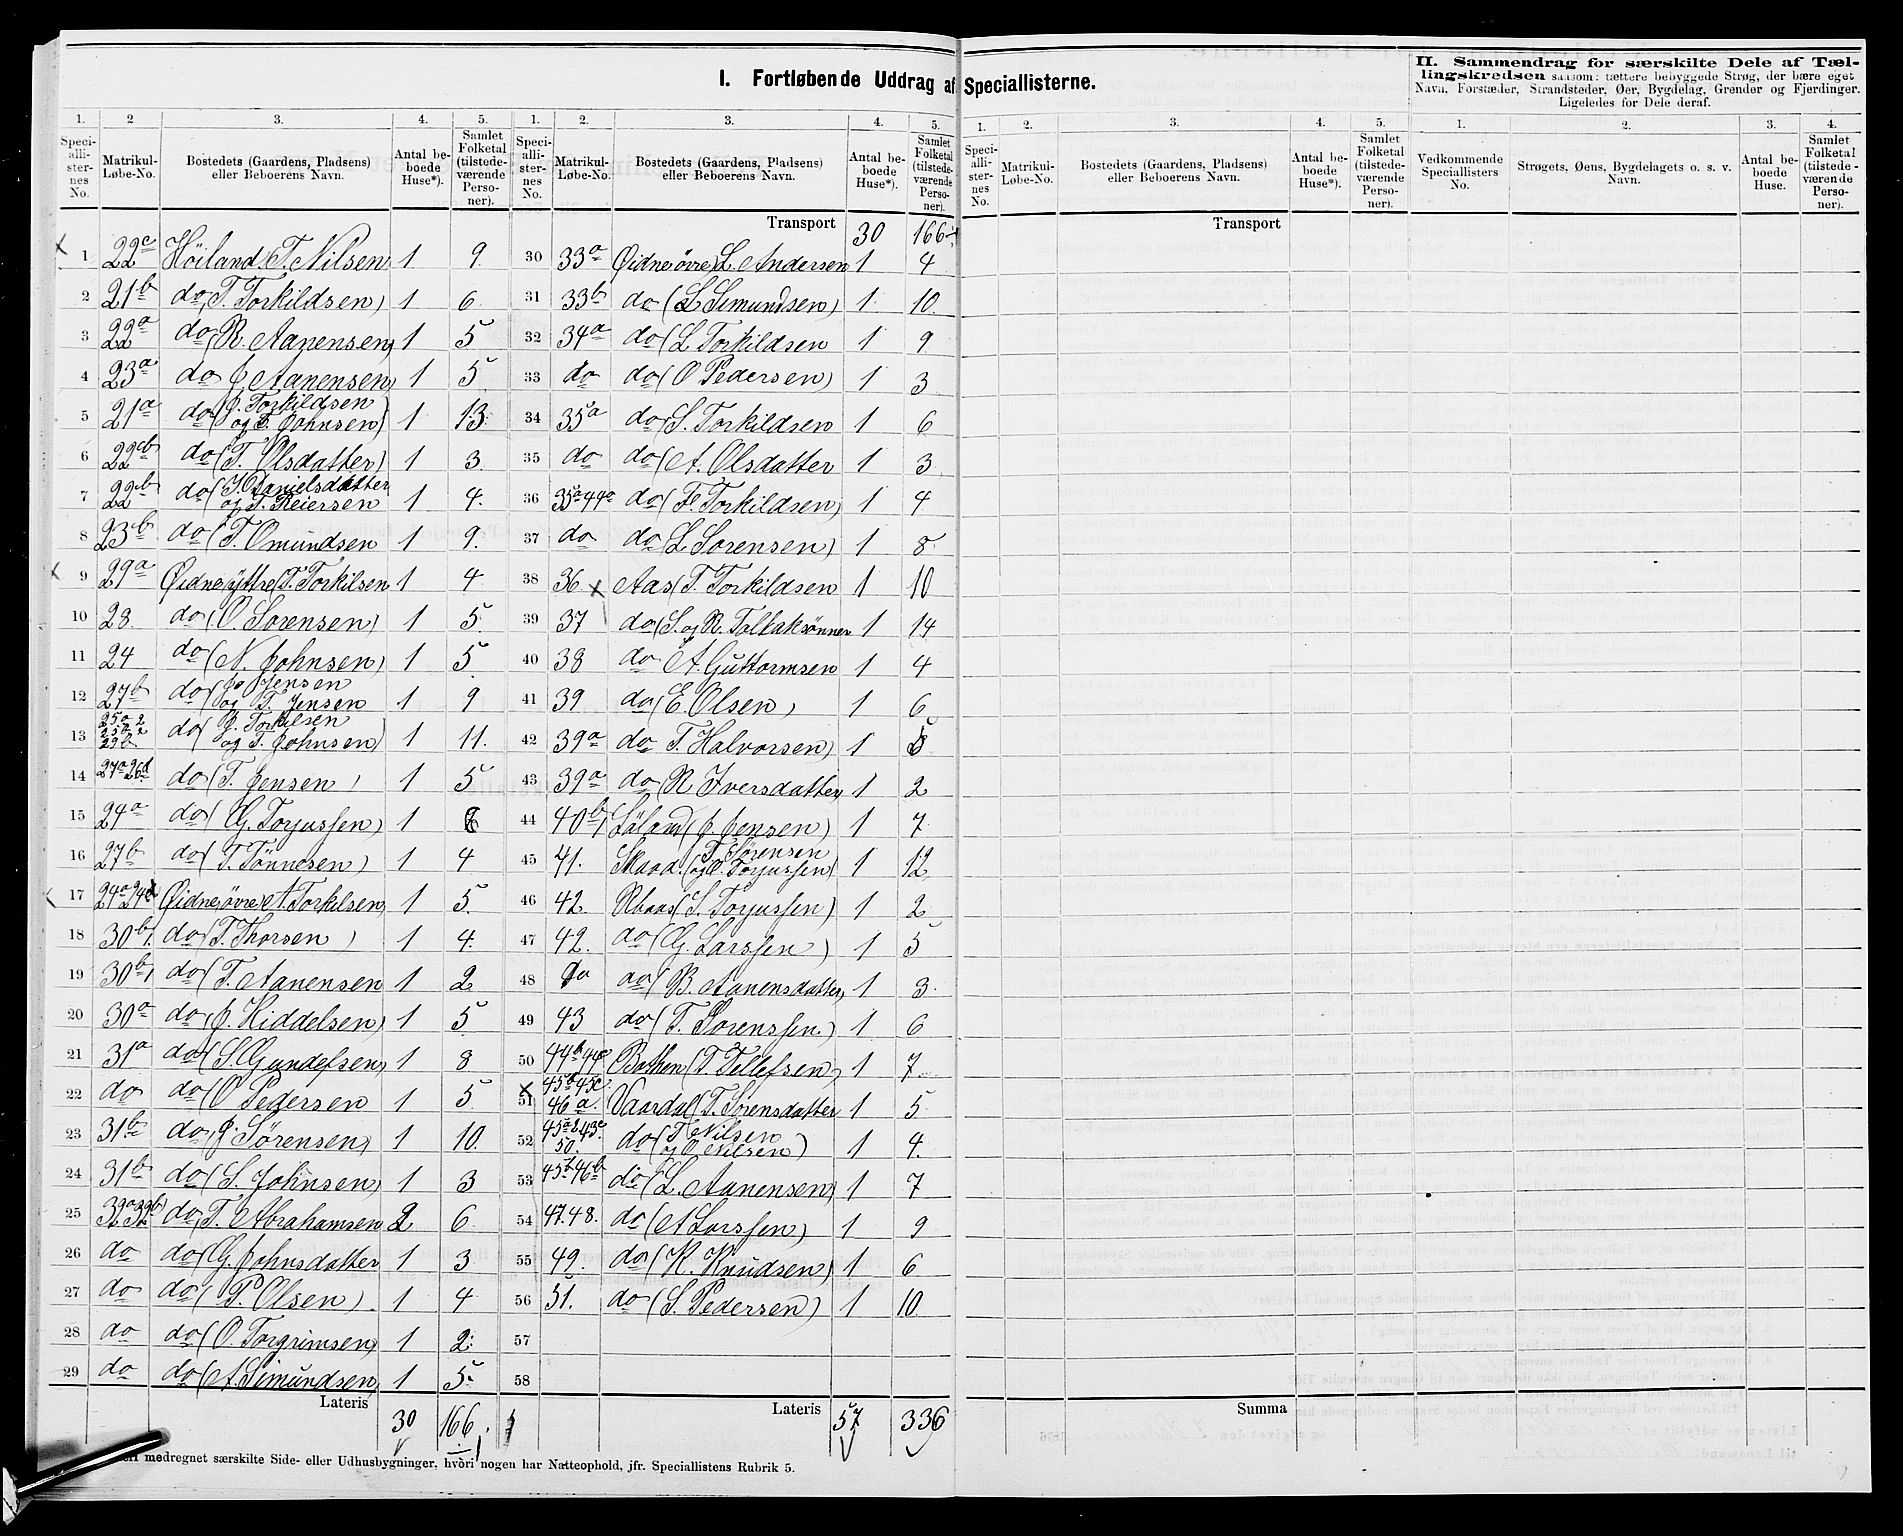 I. Fortløbende Uddrag af Speciallisterne.
II. Sammendrag for særskilte Dele af Tællingskredsen saasom: tættere bebyggede Strøg, der bære eget
Navn, Forstæder, Strandsteder, Øer, Bygdelag, Grender og Fjerdinger.
Ligeledes for Dele deraf.
1. 2 3. 4. 5. 1. 2. 3. 4. 5. 1. 2. 3. 4. 5. 1. 2. 3. 4.
Speciallisternes No. Matrikul-Løbe-No. Bostedets (Gaardens, Pladsens) eller Beboerens Navn. Antal beboede Huse*). Samlet Folketal (tilstedeværende Personer).
Speciallisternes No. Matrikul-Løbe-No. Bostedets (Gaardens, Pladsens) eller Beboerens Navn. Antal beboede Huse*). Samlet Folketal (tilstedeværende Personer).
Speciallisternes No. Matrikul-Løbe-No. Bostedets (Gaardens, Pladsens) eller Beboerens Navn. Antal beboede Huse*). Samlet Folketal (tilstedeværende Personer).
Vedkommende Speciallisters No. Strøgets, Øens, Bygdelagets o. s. v. Navn. Antal beboede Huse. Samlet Folketal (tilstedeværende Personer).
1 22c Höiland (T. Nilsen 1 9.
2 21b do T. Torkildsen) 1 6
3 22a do (R. Aanensen) 1 5
4 23a do J Aanensen) 1 5
5 21a do (J. Torkildsen og T. Johnsen) 1 13
6 22cb do (T. Olsdatter) 1 3
7 22b do (J. Danielsdatter og T. Reiersen 1 4.
8 23b do (T. Omundsen 1 9.
9 29a Øidne yttre (T. Torkilsen 1 4
10 28 do (O Sorensen) 1 5.
11 24 do (N. Johnsen) 1 5
12 27b do (J. Jensen og T. Jensen 1 9
13 do (J. Torkilsen og T. Johnsen) 1 11.
14 do (T. Jensen) 1 5
15 24a do (G. Torjussen) 1
16 27b do (T. Tönnesen) 1 4
17 Øidne övre (A. Torkilsen) 1 5.
18 30b do (T. Thorsen) 1 4.
19 30b do (T. Aanensen 1 2
20 30a do J. Kiddelsen) 1 5
21 31a do (S. Gundelsen) 1 8
22 do do (O Pedersen 1 5
23 31b do (J. Sörensen) 1 10.
24 31b do (S. Johnsen) 1 3
25 32a 32b do T. Abrahamsen 2 6
26 do do (G. Johnsdatter 1 3
27 do do (P. Olsen). 1 4
28 do do (O. Torgrimsen) 1 2.
29 do do (A. Simundsen) 1 5
Lateris 30 166.
Transport 30 166
30 33a Øidne övre) L. Andersen 1 4
31 33b do (L Simundsen) 1 10.
32 34a do (L Torkildsen 1 9
33 do do (O Pedersen) 1 3
34 35a do (S. Torkildsen 1 6
35 do do (A. Olsdatter 1 3
36 35a 44a do (F. Torkildsen) 1 4
37 do do (L Sorensen) 1 8
38 36 Aas (T. Torkildsen 1 10
39 37 do (S. og R. Tollaksönner 1 14
40 38 do A. Guttormsen 1 4
41 39 do (E. Olsen) 1 6
42 39a do T. Halvorsen) 1
43 39a do (R Iversdatter) 1 2
44 40b Läland (J. Jensen) 1 7
45 41. (T. Sörensen og O. Torjussen) 1 12
46 42. (S. Torjussen) 1 2
47 42. do (G. Larssen) 1 5
48 do do (B. Aanensdatter) 1 3.
49 43 do (T. Sorenssen.) 1 6
50 Bakken (T. Tellefsen) 1 7
51 46a. Vaardal (T. Sorensdatter 1 5
52 50. do (T Nilsen og O Nilsen) 1 4.
53 45b 46b do (L. Aanensen) 1 7
54 47.48. do (A Larssen) 1 9
55 49. do (K. Knudsen) 1 6
56 51. do (S. Pedersen) 1 10
57
58
Lateris 57 336
Transport
Summa
medregnet særskilte Side- eller Udhusbygninger, hvori nogen har Natteophold, jfr. Speciallistens Rubrik 5.